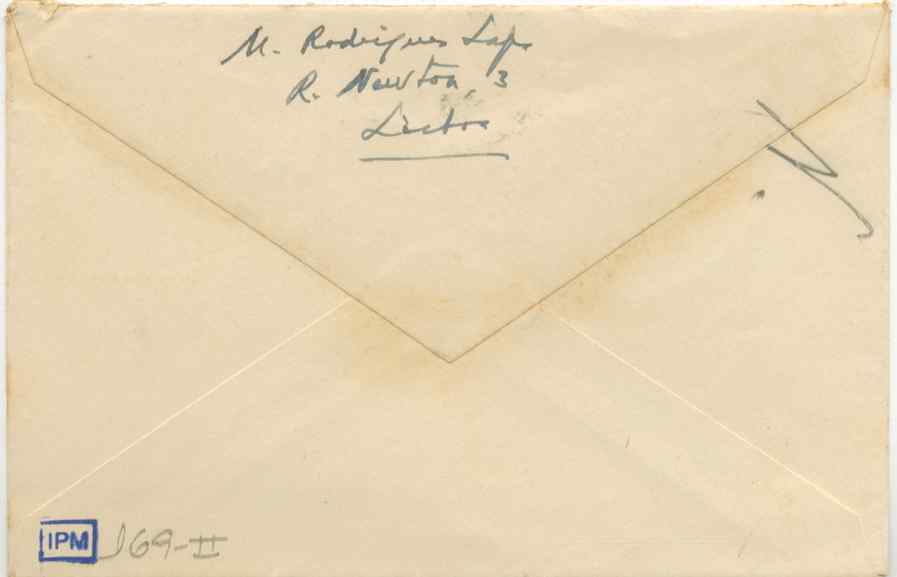 M. Rodrigues Lapa
R. Newton, 3
Lisboa
IPM 169-II